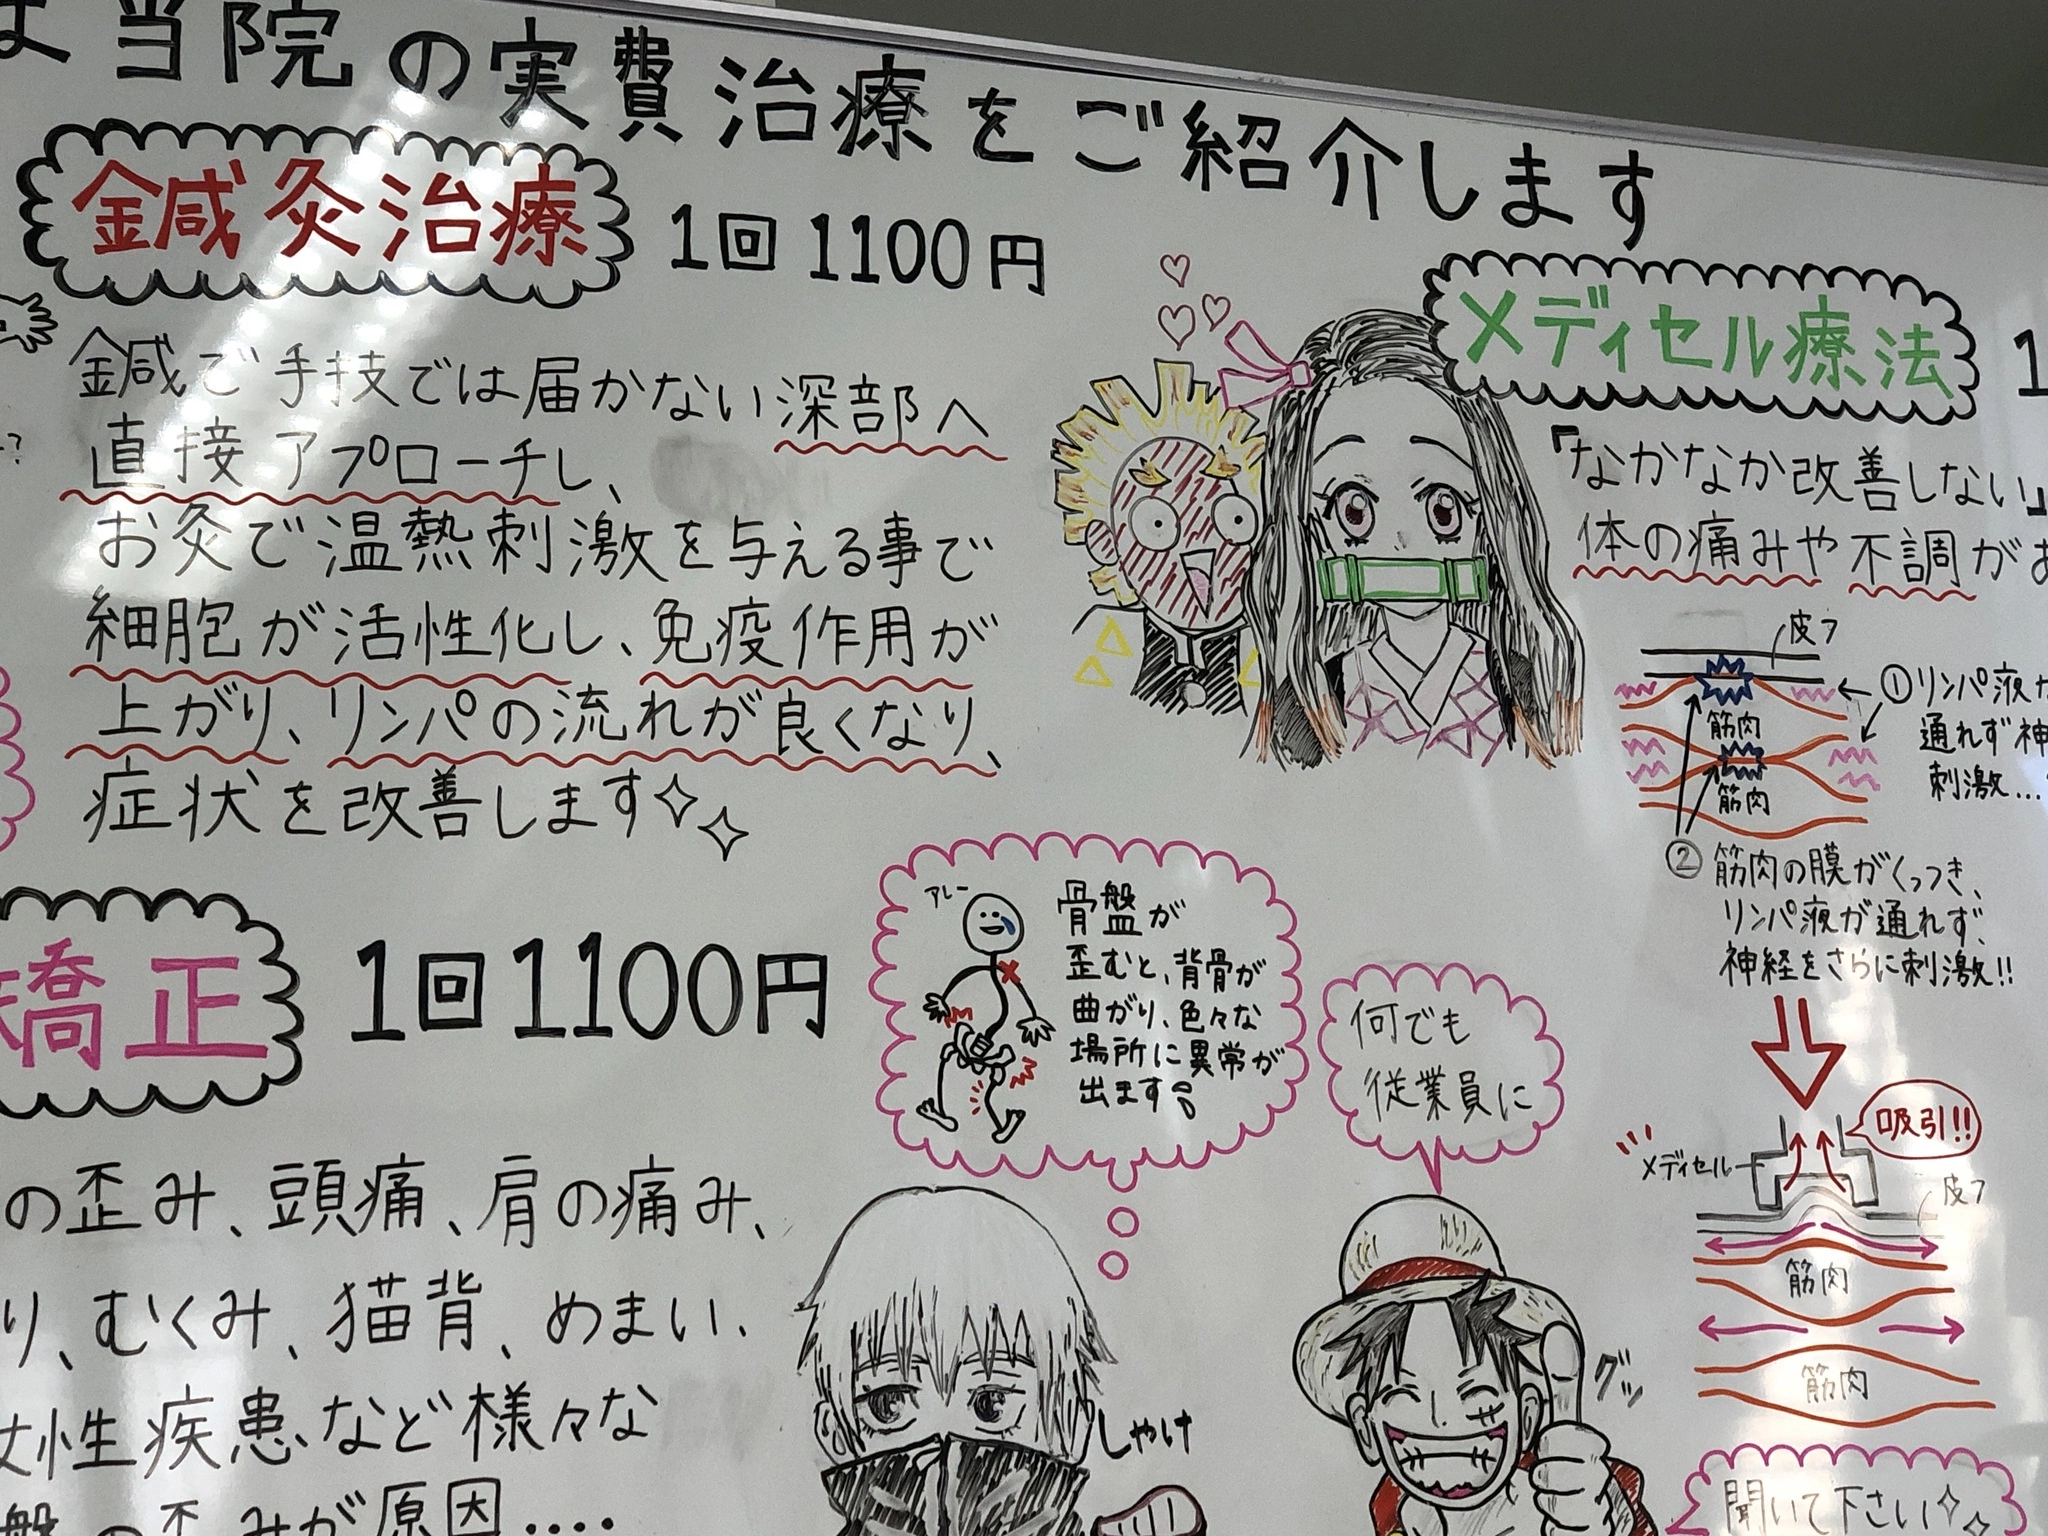 は当院の実費治療をご紹介します
鍼灸治療
1回 1100円
鍼で手技では届かない深部へ
直接アプローチし、
お灸で温熱刺激を与える事で
細胞が活性化し、免疫作用が
上がり、リンパの流れが良くなり、
症状を改善します
メディセル療法
1
『なかなか改善しない』
体の痛みや不調があ
皮フ
筋肉
筋肉
①リンパ液が
通れず神
刺激…
②筋肉の膜がくっつき、
リンパ液が通れず、
神経をさらに刺激!!
吸引!!
メディセル
皮フ
筋肉
筋肉
矯正
1回1100円
の歪み、頭痛、肩の痛み、
り、むくみ、猫背、めまい、
女性疾患など様々な
盤の歪みが原因....
アレー
骨盤が
歪むと、背骨が
曲がり、色々な
場所に異常が
出ます
しゃけ
何でも
従業員に
グッ
聞いて下さい